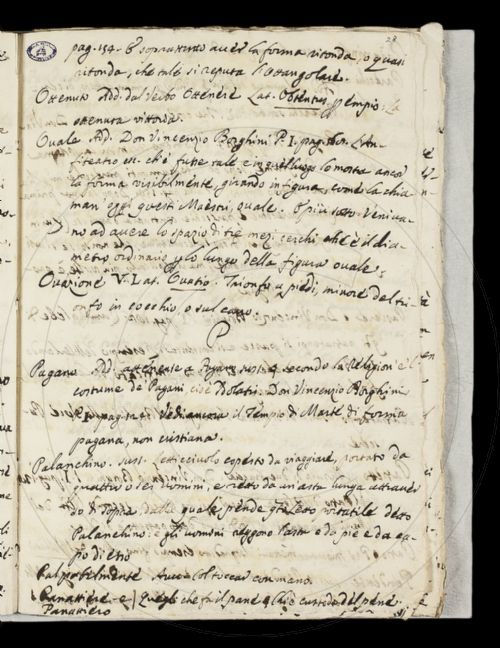 28
pag. 154. E soprattutto aver la forma ritonda, o quasi
ritonda, che tale si reputa l'ottangolare.
Ottenuto Add. dal Verbo Ottenere Lat. Obtentus. p. empio: la
ottenuta vittoria.
Ovale Add. Don Vincenzio Borghini P. I. pag.
fiteatro ch'e' fusse tale e in quel luogo lo mostra ancor
la forma visibilmente, girando in figura, come la chia
man oggi questi Maestri, ovale. E più sotto Veniva
no ad avere lo spazio di tre mezi cerchi che è il dia
metro ordinario p lo lungo della figura ovale.
Ovazione V. Lat. Ovatio. Trionfo a piedi, minore del tri
onfo in cocchio, o sul carro.
P
Pagano Add. attenente a Pagano sust. secondo la Religion e 'l
costume de' Pagani, cioè Idolatri. Don Vincenzio Borghini
P. I. pag. Vedi ancora il Tempio di Marte di forma
pagana, non cristiana.
Palanchino. sust. Letticciuolo coperto da viaggiare, portato da
quattro o sei Uomini, e retto da un'asta lunga attraver
so di sopra, dalla quale pende q.to letto portatile detto
Palanchino: e gli uomini reggono l'asta e da piè e da ca
po di essa
Palpabilmente Avv. Col toccar con mano.
Panattiere e Quegli che fa il pane e Chi è custode del pane.
Panattiero